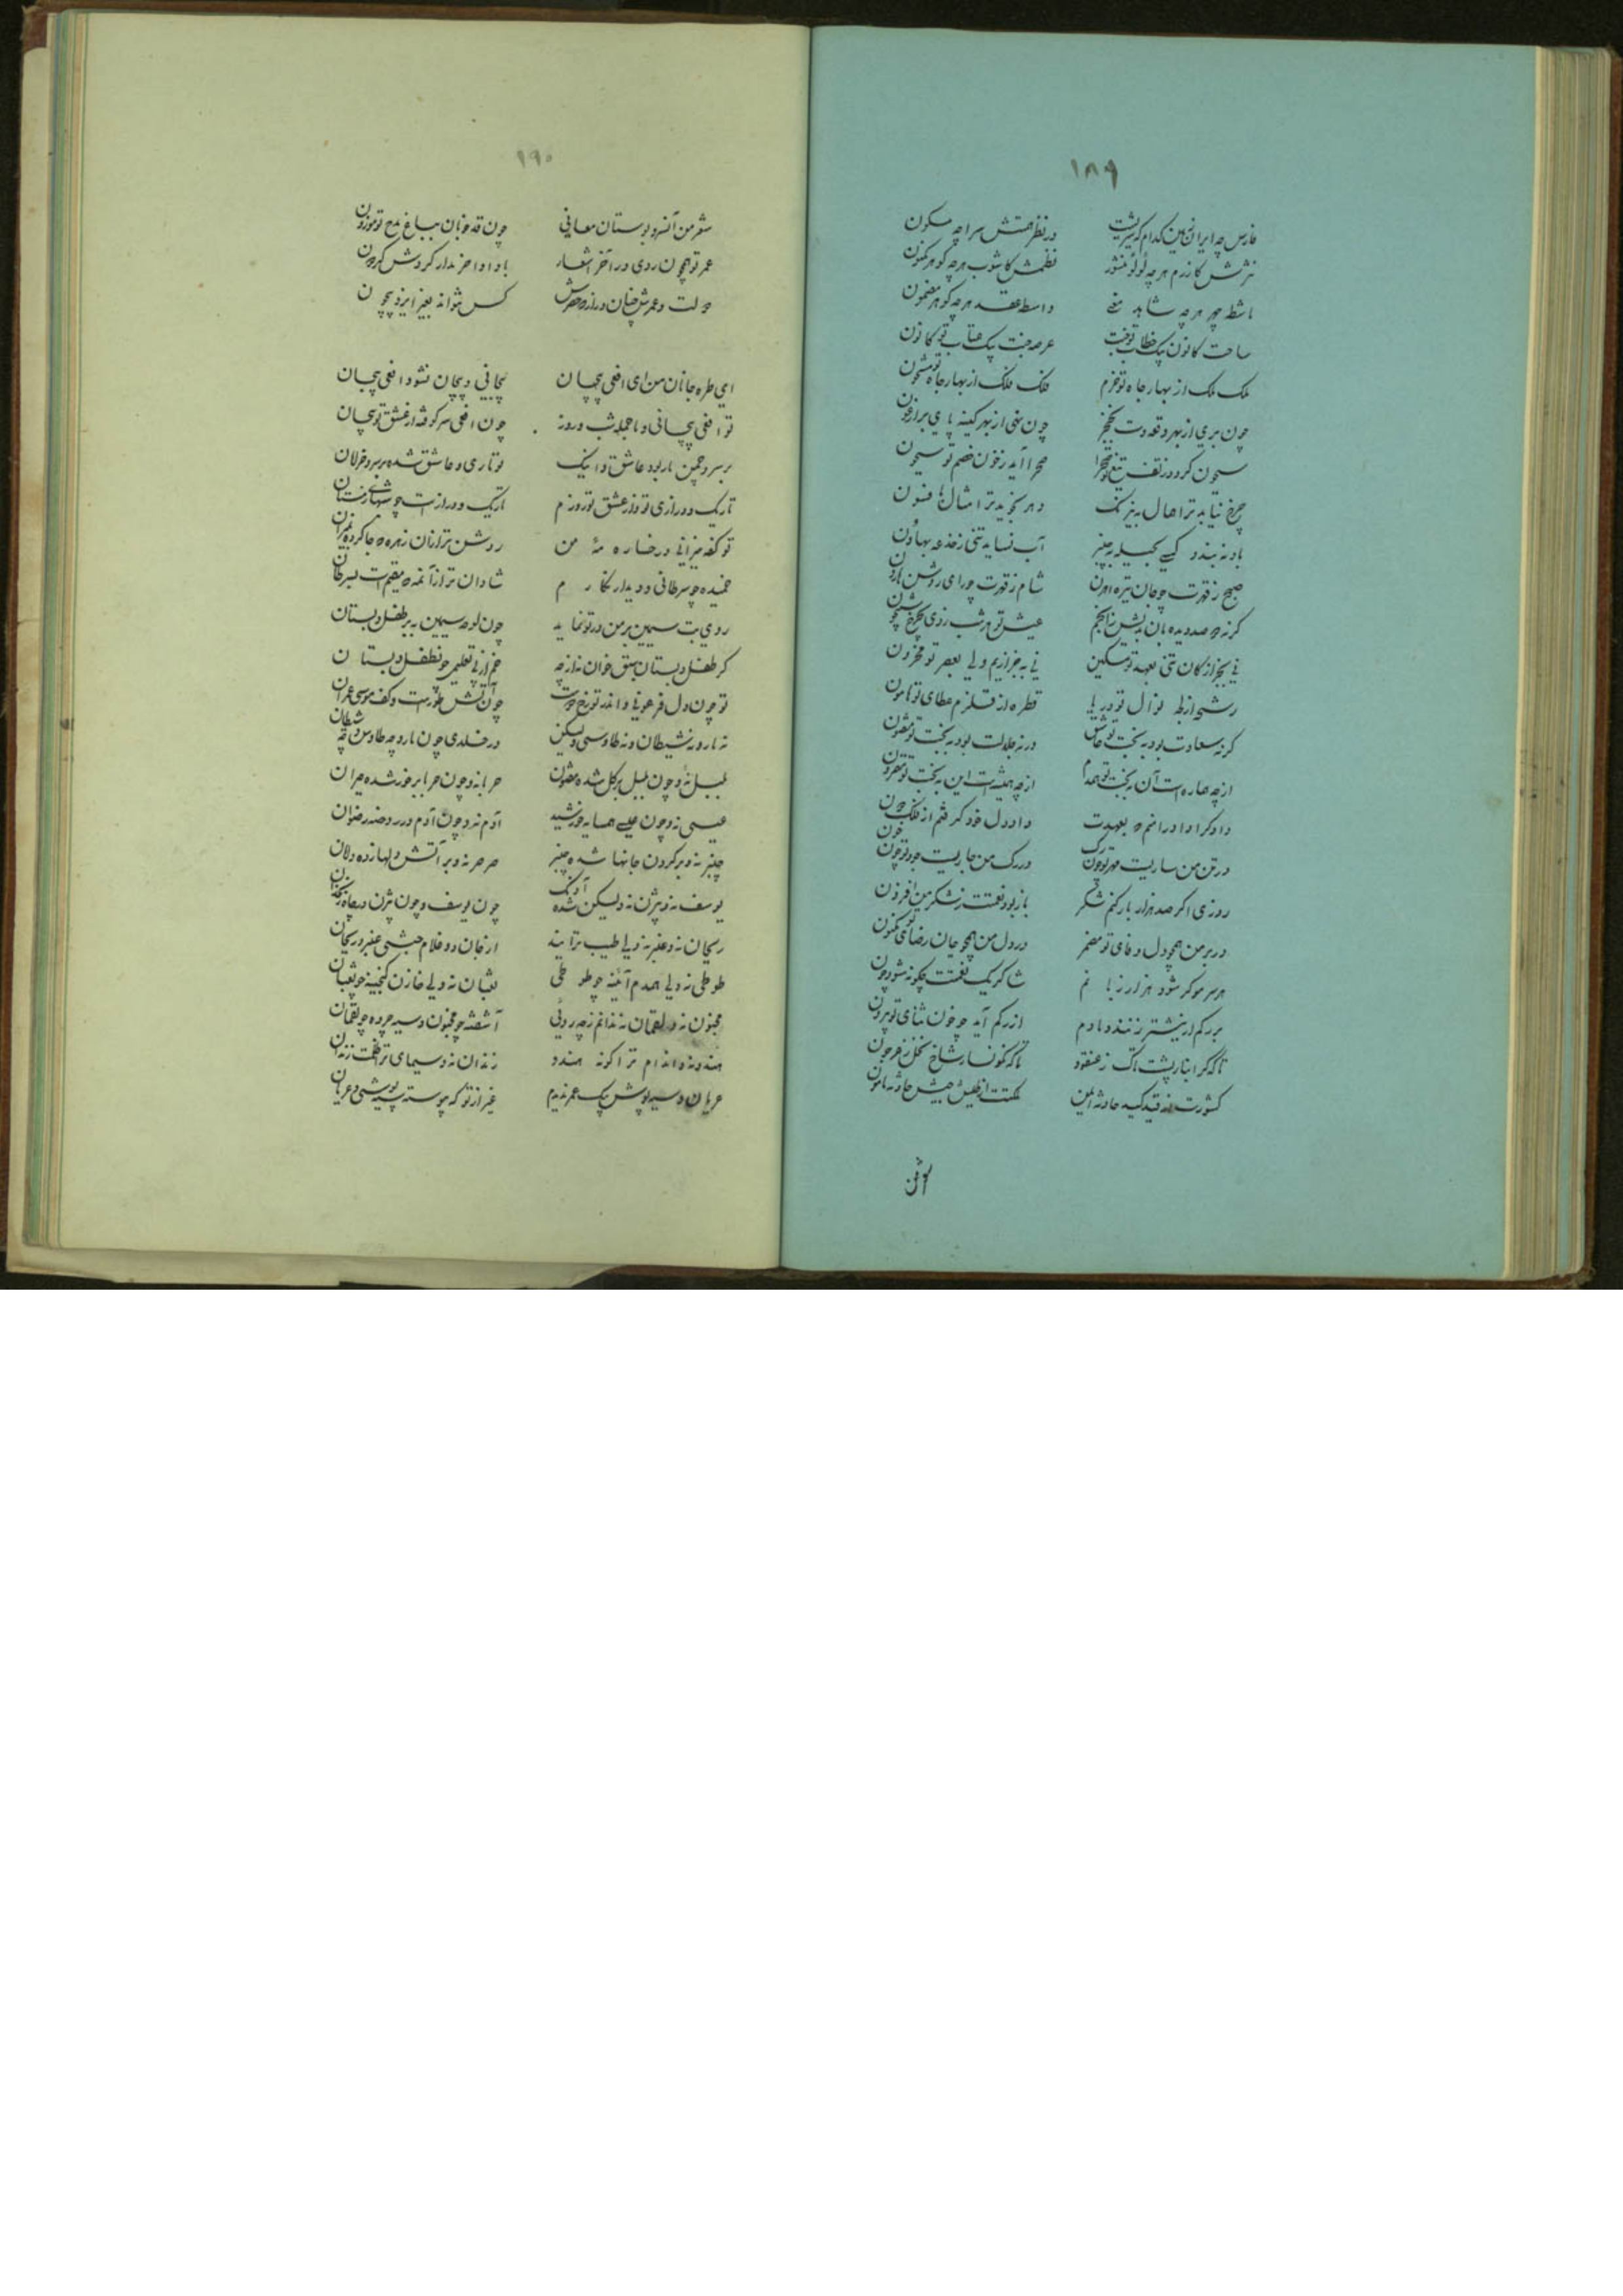 ۱۸۹
فارس چه ایران زمین کدام که گیتیست در نظر همتش سراچه مسکون
نثرش کازرم هرچه لؤلؤ منثور نظمش کاشوب هرچه گوهر مکنون
ماشطه چهر هرچه شاهد معنی واسطه عقد هرچه گوهر مضمون
ساحت کانون یک خطاب تو جنت عرصه جنت یک عتاب تو کانون
ملک ملک از بهار جاه تو خرم فلک فلک از بهار جاه تو مشحون
چون بری از بهر وقعه دست بخنجر چون نهی از بهر کینه پای بر ارغون
سیحون گردد ز تف تیغ تو صحرا صحرا آید ز خون خصم تو سیحون
چرخ نیابد ترا همال به نیرنگ دهر نجوید ترا مثال بافسون
باد نبندد کسی بحیله به چنبر آب نساید تنی ز خدعه بهاون
صبح ز قهرت چو جان تیره اهرن شام ز مهرت چو رای روشن هارون
گرنه دو صد دیده بان بدیش ز انجم عیش تو هر شب زدی بچرخ شبیخون
نی بجز از کان تنی بعهد تو مسکین نی بجز از یم دلی بعصر تو محزون
رشحه از نوال تو دریا قطره از قلزم عطای تو هامون
گرنه سعادت بود به بخت تو عاشق ورنه جلالت بود به بخت تو مفتون
از چه هماره است آن به بخت تو همدم از چه همیشه است این به بخت تو مقرون
دادگرا داورا منم که بعهدت داد دل خود گرفتم از فلک دون
در تن من ساریست مهر تو چون رگ در رگ من جاریست جود تو چون خون
روزی اگر صد هزار بار کنم شکر باز بود نعمتت ز شکر من افزون
در بر من همچو دل وفای تو مضمر در دل من همچو جان رضای تو مکنون
هر سر مو گر شود هزار زبانم شاکر یک نعمتت چگونه شود چون
بر رگم ار نیشتر زنند دمادم از رگم آید چو خون ثنای تو بیرون
تا که گرانبار پشت تاک ز عنقود تا که نگونسار شاخ نخل ز عرجون
کشورت از قید کید حادثه ایمن ملکت از طیش جیش حادثه مامون
۱۹۰
شعر من آن سرو بوستان معانی چون قد خوبان بباغ مدح تو موزون
عمر تو همچون ردی در آخر اشعار باد اواخر مدار گردش گردون
دولت و عمرش چنان دراز که حصرش کس نتواند بغیر ایزد بیچون
ای طره جانان من ای افعی پیچان پیچانی و پیچان نشود افعی بیجان
تو افعی پیچانی و ما جمله شب و روز چون افعی سرکوفته از عشق تو پیچان
بر سرو چمن مار بود عاشق و اینک تو ماری و عاشق شده بر سرو خرامان
تاریک و درازی تو و از عشق تو روزم تاریک و دراز است چو شبهای زمستان
تو کفه میزانی و رخساره مه من روشن تر از آن زهره که جا کرده بمیزان
خمیده چو سرطانی و دیدار نگارم شادان تر از آن مه که مقیم است بسرطان
روی بت سیمین بر من در تو نماید چون لوحه سیمین به بر طفل دبستان
گر طفل دبستان سبق خوان نه از چه خم از پی تعلیمی چو نطفل دبستان
تو چون دل فرعونی و اندر تو رخ دوست چون آتش طور است و کف موسی عمران
نه مار و نه شیطان و نه طاوسی ولیکن در خلدی چون مار و چه طاوس و چه شیطان
بلبل نه و چون بلبل بر گل شده مفتون حربا نه و چون حربا بر خور شده حیران
عیسی نه و چون عیسی همسایه خورشید آدم نه و چون آدم در روضه رضوان
چنبر نه و بر گردن جانها شده چنبر صرصر نه و بر آتش دلها زده دامان
یوسف نه و بیژن نه ولیکن شده آونگ چون یوسف و چون بیژن در چاه زنخدان
ریحان نه و عنبر نه ولی طیب ترایند از جان دو غلام حبشی عنبر و ریحان
طوطی نه ولی همدم آئینه چو طوطی ثعبان نه ولی خازن گنجینه چو ثعبان
مجنون نه و لقمان نه ندانم ز چه روئی آشفته چو مجنون و سیه چرده چو لقمان
هندو نه و اندام ترا گونه هندو زندان نه و سیمای ترا ظلمت زندان
عریان و سیه پوش یک عمر ندیدم غیر از تو که پیوسته سیه پوشی و عریان